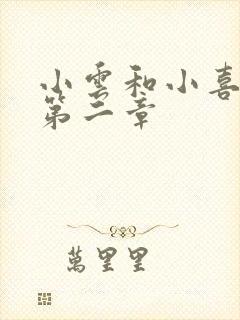 小雲和小喜
第二章
萬里里